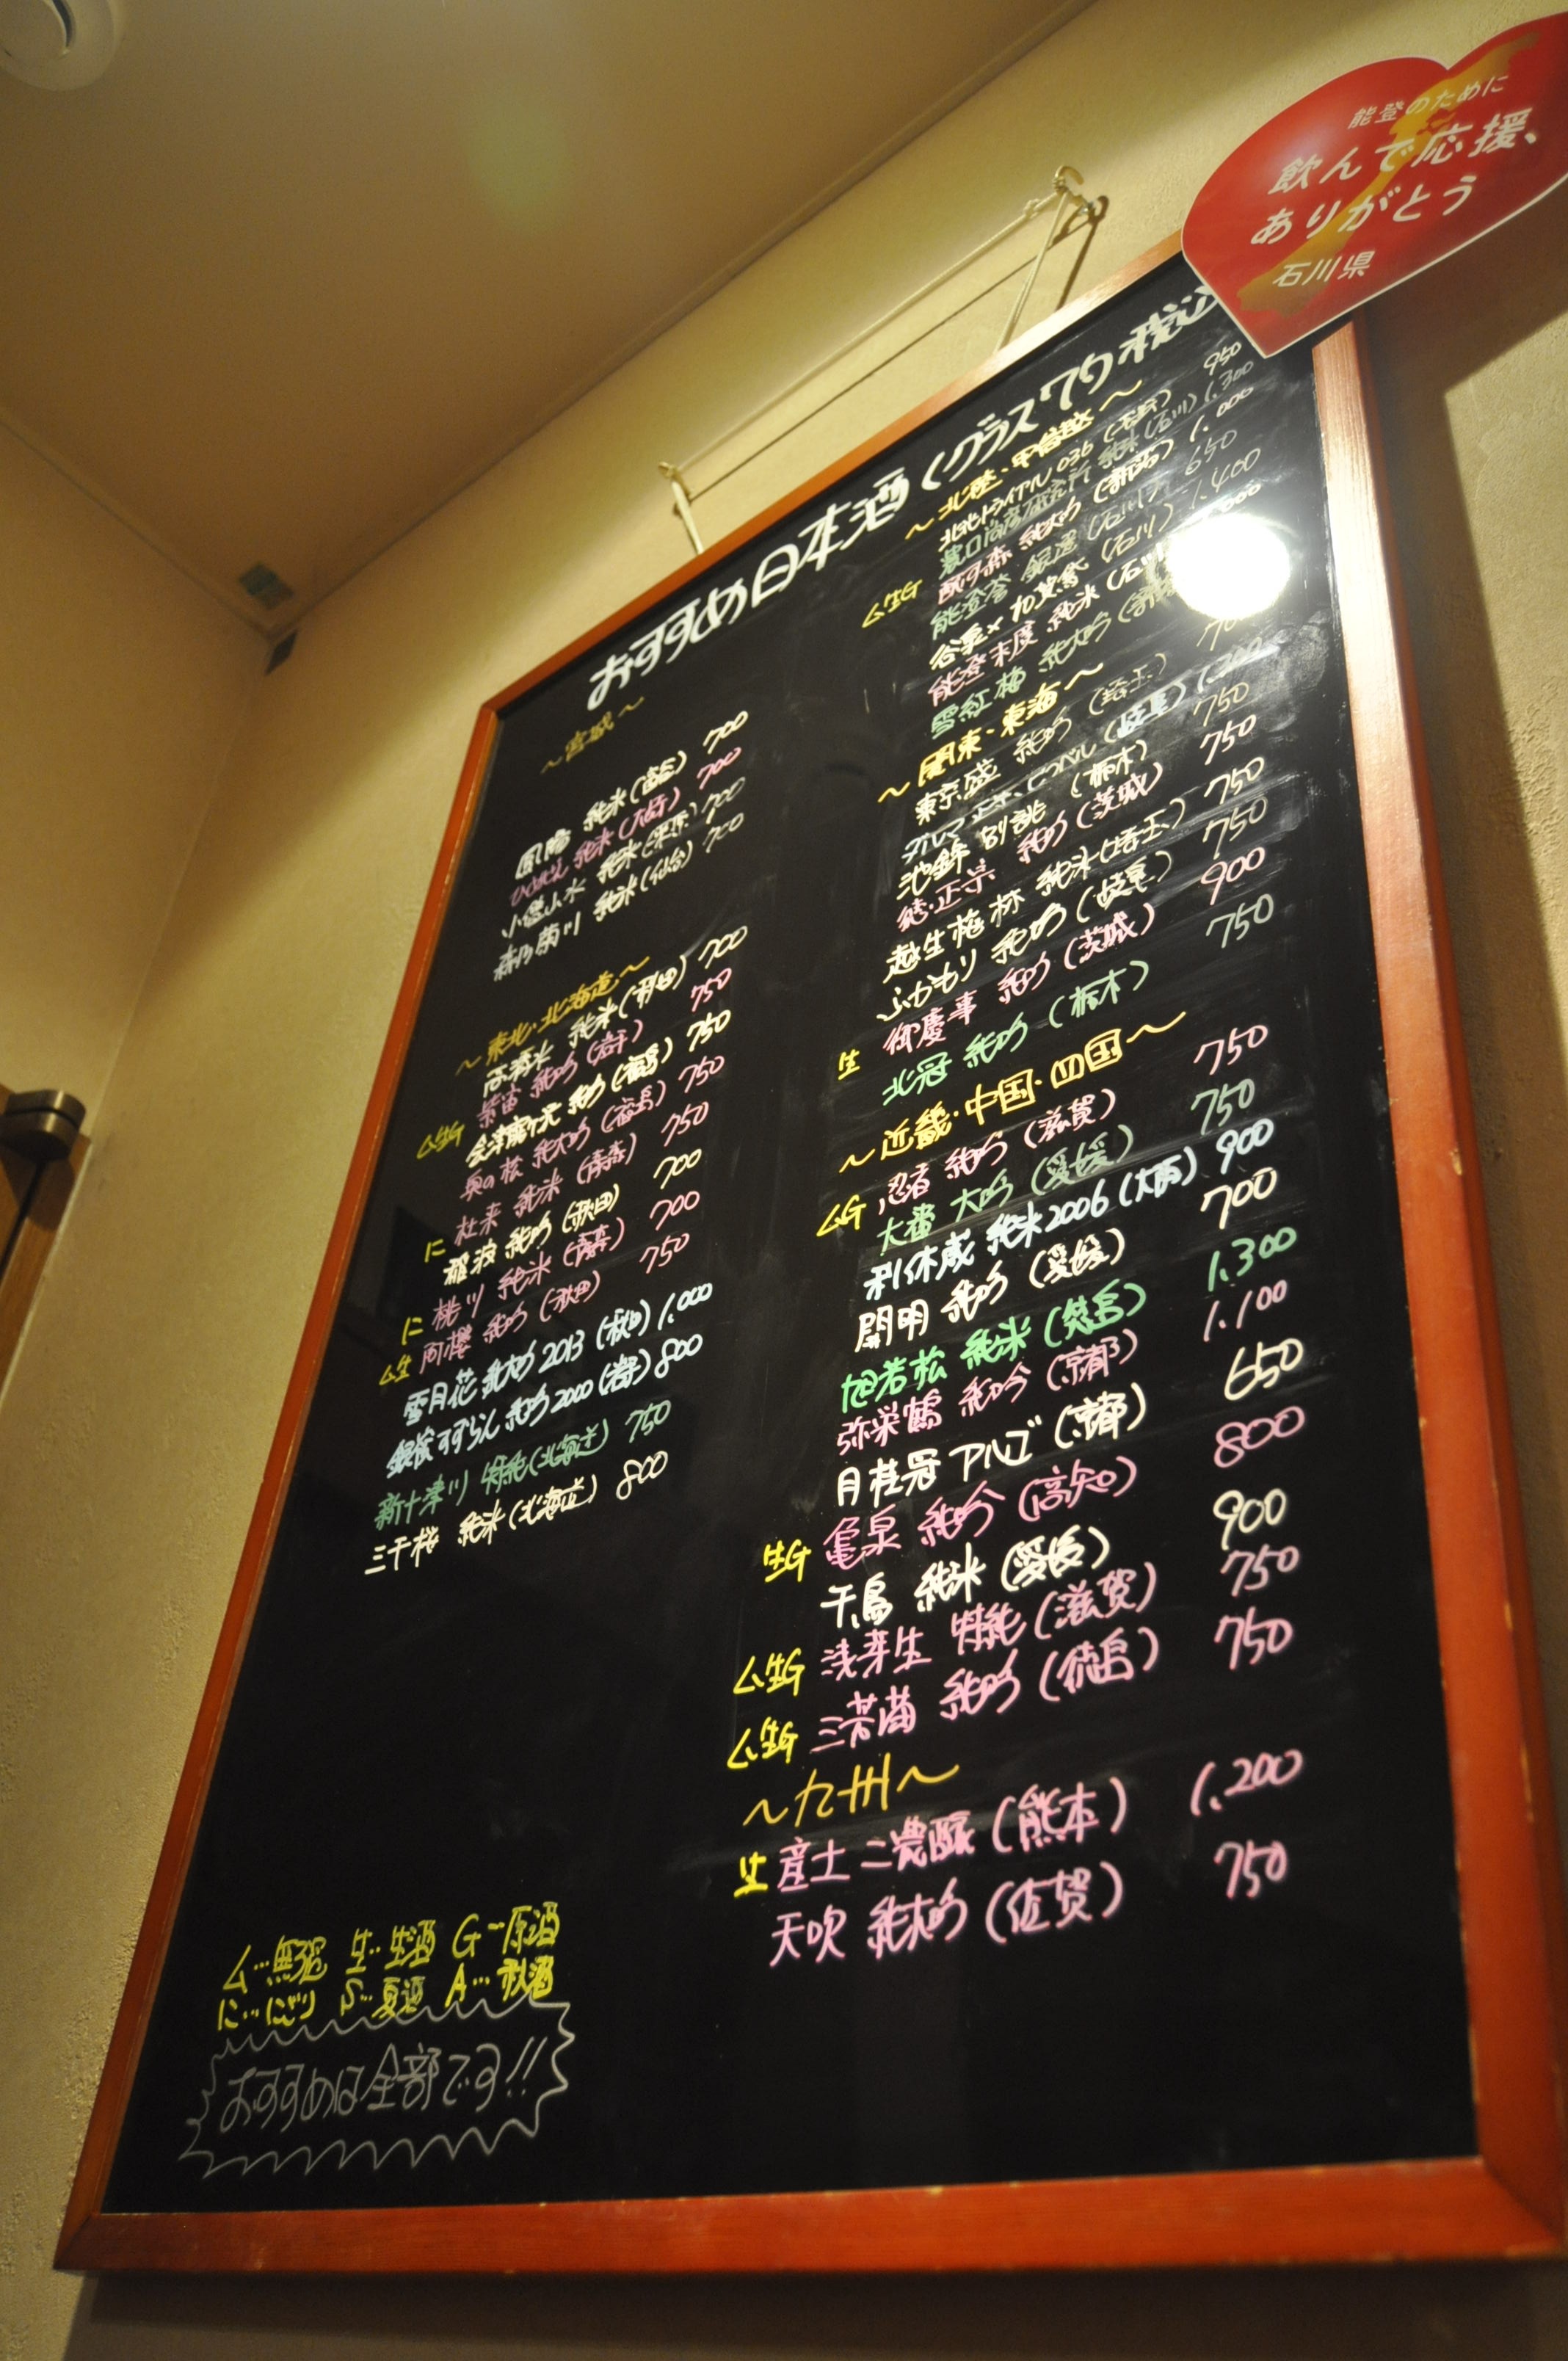 能登のために
飲んで応援、
ありがとう
石川県
おすすめ日本酒(グラス7勺 税込
~宮城~
鳳陽 純米(富谷) 700
ひと目ぼれ 純米(大崎) 700
小僧山水 純米(栗原) 700
森乃菊川 純米(仙台) 700
~東北・北海道~
純米(秋田) 700
ム生G 紫宙 純吟(岩手) 750
会津龍が沢 純吟(福島) 750
奥の松 純大吟(福島) 750
に 杜来 純米(青森) 750
稲波 純吟(秋田) 700
に 桃川 純米(青森) 700
ム生 阿櫻 純吟(秋田) 750
雪月花 純大吟 2013(秋田) 1,000
銀河すずらん 純吟 2000(岩手) 800
新十津川 特純(北海道) 750
三千桜 純米(北海道) 800
ム…無ろ過 生…生酒 G…原酒
に…にごり S…夏酒 A…秋酒
おすすめは全部です!!
~北陸・甲信越~
トライアル 036 950
農口尚彦研究所 純米(石川) 1,300
ム生G 純大吟(新潟) 1,000
能登誉 銀選(石川) 650
谷泉×加賀鶯(石川) 1,400
能登末廣 純米(石川
雪紅梅 純大吟(新潟
~関東・東海~
東京盛 純吟(埼玉) 70
ダルマ正宗 (岐阜) 1,200
池錦 別誂(栃木) 750
結・正宗 純吟(茨城) 750
越生梅林 純米(埼玉) 750
ふかもり 純吟(岐阜) 750
生 御慶事 純吟(茨城) 900
北冠 純吟(栃木) 750
~近畿・中国・四国~
ムG 忍者 純吟(滋賀) 750
大番 大吟(愛媛) 750
利休蔵 純米2006(大阪) 900
開明 純吟(愛媛) 700
旭若松 純米(徳島) 1,300
弥栄鶴 純吟(京都) 1,100
月桂冠 アルゴ(京都) 650
生G 亀泉 純吟(高知) 800
千鳥 純米(愛媛) 900
ム生G 浅芽生 特純(滋賀) 750
ム生G 三芳菊 純吟(徳島) 750
~九州~
生 産土 二農醸(熊本) 1,200
天吹 純大吟(佐賀) 750